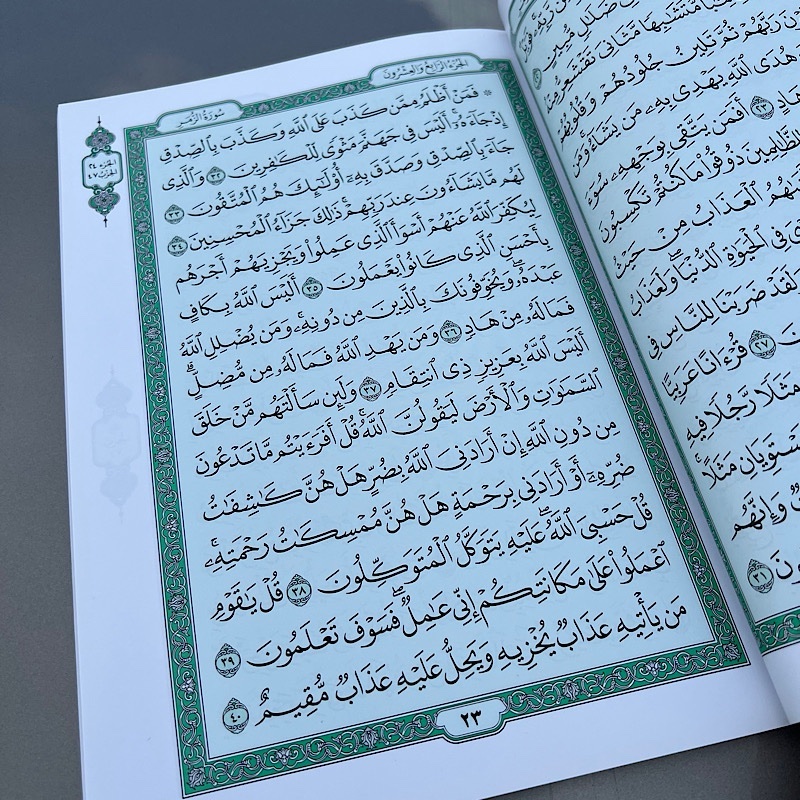 ضَلَٰلٍ مُّبِينٍ
مُّتَشَٰبِهًا مَّثَانِىَ تَقْشَعِرُّ مِنْهُ
رَبَّهُمْ ثُمَّ تَلِينُ جُلُودُهُمْ وَقُلُوبُهُمْ
هُدَى ٱللَّهِ يَهْدِى بِهِۦ مَن يَشَآءُ وَمَن
هَادٍ ٢٣ أَفَمَن يَتَّقِى بِوَجْهِهِۦ سُوٓءَ
ذُوقُوا۟ مَا كُنتُمْ تَكْسِبُونَ
ٱلْعَذَابُ مِنْ حَيْثُ
فِى ٱلْحَيَوٰةِ ٱلدُّنْيَا ۖ وَلَعَذَابُ
ضَرَبْنَا لِلنَّاسِ فِى
٢٧ قُرْءَانًا عَرَبِيًّا
مَثَلًا رَّجُلًا فِيهِ
مَثَلًا ۚ
وَإِنَّهُم
٣١
الجُزْءُ الرَّابِعُ وَالْعِشْرُونَ
سُورَةُ الزُّمَرِ
الجزء ٢٤
الحزب ٤٧
۞ فَمَنْ أَظْلَمُ مِمَّن كَذَبَ عَلَى ٱللَّهِ وَكَذَّبَ بِٱلصِّدْقِ
إِذْ جَآءَهُۥٓ ۚ أَلَيْسَ فِى جَهَنَّمَ مَثْوًى لِّلْكَٰفِرِينَ ٣٢ وَٱلَّذِى
جَآءَ بِٱلصِّدْقِ وَصَدَّقَ بِهِۦٓ ۙ أُو۟لَٰٓئِكَ هُمُ ٱلْمُتَّقُونَ ٣٣
لَهُم مَّا يَشَآءُونَ عِندَ رَبِّهِمْ ۚ ذَٰلِكَ جَزَآءُ ٱلْمُحْسِنِينَ ٣٤
لِيُكَفِّرَ ٱللَّهُ عَنْهُمْ أَسْوَأَ ٱلَّذِى عَمِلُوا۟ وَيَجْزِيَهُمْ أَجْرَهُم
بِأَحْسَنِ ٱلَّذِى كَانُوا۟ يَعْمَلُونَ ٣٥ أَلَيْسَ ٱللَّهُ بِكَافٍ
عَبْدَهُۥ ۖ وَيُخَوِّفُونَكَ بِٱلَّذِينَ مِن دُونِهِۦ ۚ وَمَن يُضْلِلِ ٱللَّهُ
فَمَا لَهُۥ مِنْ هَادٍ ٣٦ وَمَن يَهْدِ ٱللَّهُ فَمَا لَهُۥ مِن مُّضِلٍّ ۗ
أَلَيْسَ ٱللَّهُ بِعَزِيزٍ ذِى ٱنتِقَامٍ ٣٧ وَلَئِن سَأَلْتَهُم مَّنْ خَلَقَ
ٱلسَّمَٰوَٰتِ وَٱلْأَرْضَ لَيَقُولُنَّ ٱللَّهُ ۚ قُلْ أَفَرَءَيْتُم مَّا تَدْعُونَ
مِن دُونِ ٱللَّهِ إِنْ أَرَادَنِىَ ٱللَّهُ بِضُرٍّ هَلْ هُنَّ كَٰشِفَٰتُ
ضُرِّهِۦٓ أَوْ أَرَادَنِى بِرَحْمَةٍ هَلْ هُنَّ مُمْسِكَٰتُ رَحْمَتِهِۦ ۚ
قُلْ حَسْبِىَ ٱللَّهُ ۖ عَلَيْهِ يَتَوَكَّلُ ٱلْمُتَوَكِّلُونَ ٣٨ قُلْ يَٰقَوْمِ
ٱعْمَلُوا۟ عَلَىٰ مَكَانَتِكُمْ إِنِّى عَٰمِلٌ ۖ فَسَوْفَ تَعْلَمُونَ ٣٩
مَن يَأْتِيهِ عَذَابٌ يُخْزِيهِ وَيَحِلُّ عَلَيْهِ عَذَابٌ مُّقِيمٌ ٤٠
٢٣